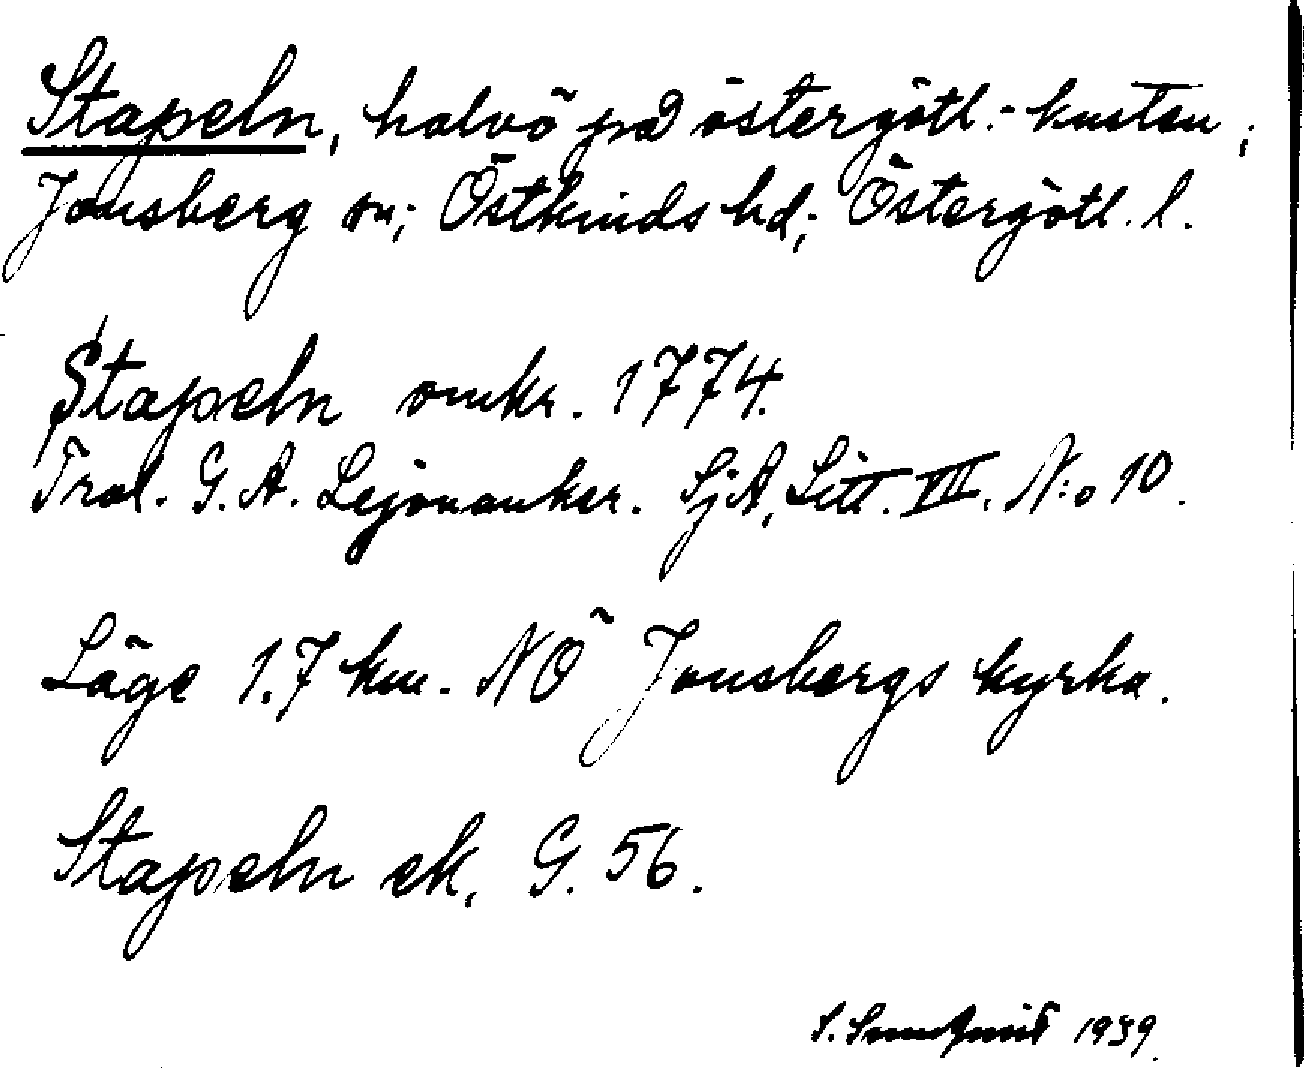 Stapeln, halvö på östergötl.-kusten;
Jonsberg sn; Östkinds hd; Östergötl. l.
Stapeln omkr. 1774.
Trol. G. A. Lejonanker. SjA, Litt. VII. N:o 10.
Läge 1.7 km. NÖ Jonsbergs kyrka.
Stapeln ek. G. 56.
S. 1939.